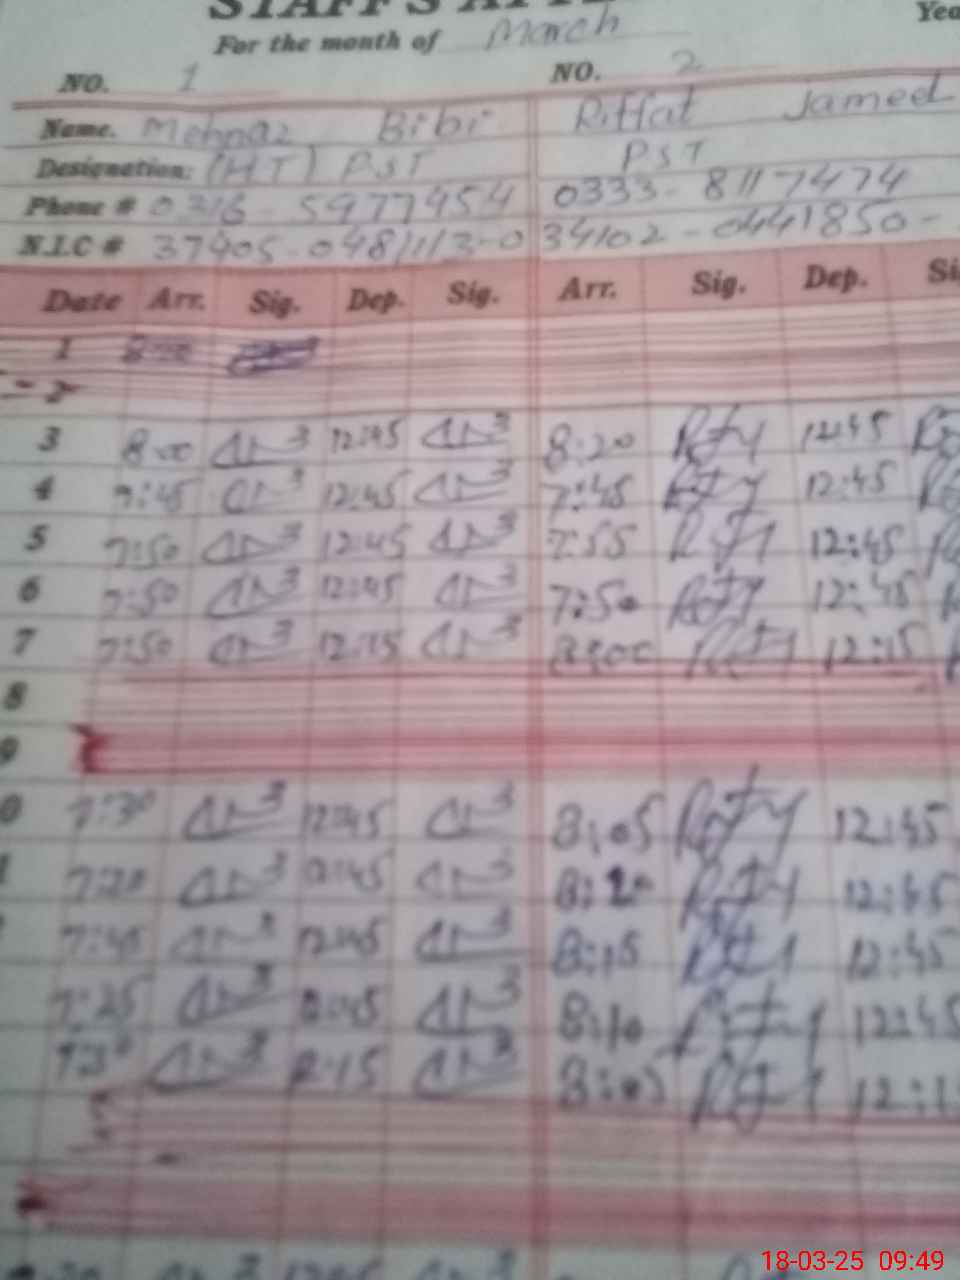 STAFF'S ATTE
For the month of March Yea
NO. 1 NO. 2
Name. Mehnaz Bibi Riffat Jameel
Designation: (HT) PST PST
Phone # 0316-5977454 0333-8117474
N.I.C # 37405-0481113-0 34102-0441850-
Date Arr. Sig. Dep. Sig. Arr. Sig. Dep. Sig
1 8:00
2
3 8:00 12:45 8:20 12:45
4 7:45 12:45 7:45 12:45
5 7:50 12:45 7:55 12:45
6 7:50 12:45 7:50 12:45
7 7:50 12:15 8:00 12:15
8
9
0 7:30 12:45 8:05 12:45
7:20 12:45 8:20 12:45
7:45 12:45 8:15 12:45
7:25 12:45 8:10 12:45
7:30 12:15 8:05 12:1
18-03-25 09:49